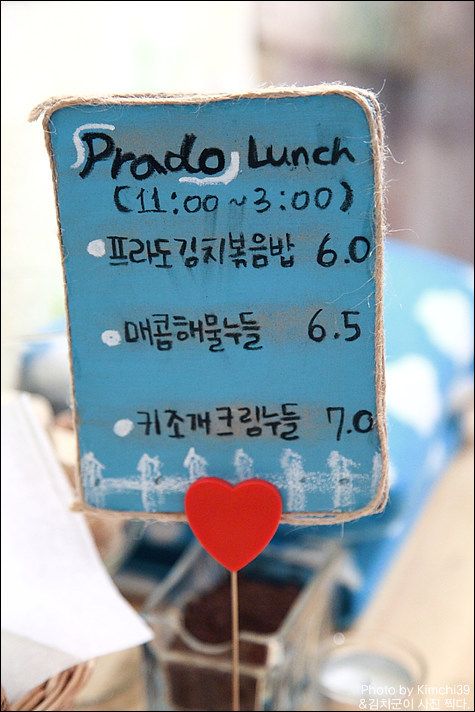 Prado Lunch
(11:00~3:00)
프라도김치볶음밥 6.0
매콤해물누들 6.5
키조개크림누들 7.0
Photo by Kimchi39
&김치군이 사진 찍다.